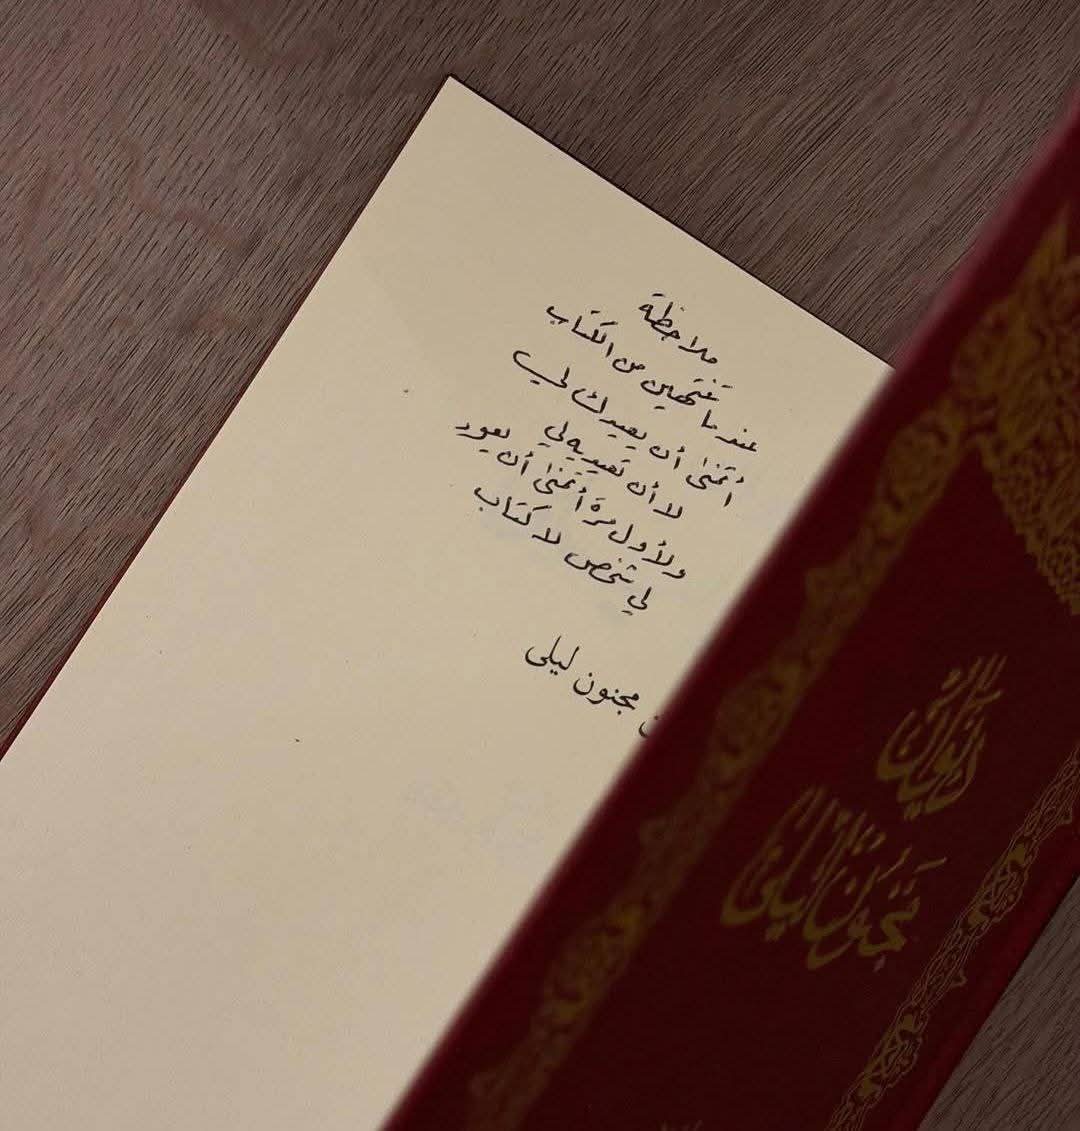 ملاحظة
عندما تنتهين من الكتاب
أتمنى أن يعيدك لي
لا أن تعيديه لي
ولأول مرة أتمنى أن يعود
لي شخص لا كتاب
مجنون ليلى
ديوان
مجنون ليلى